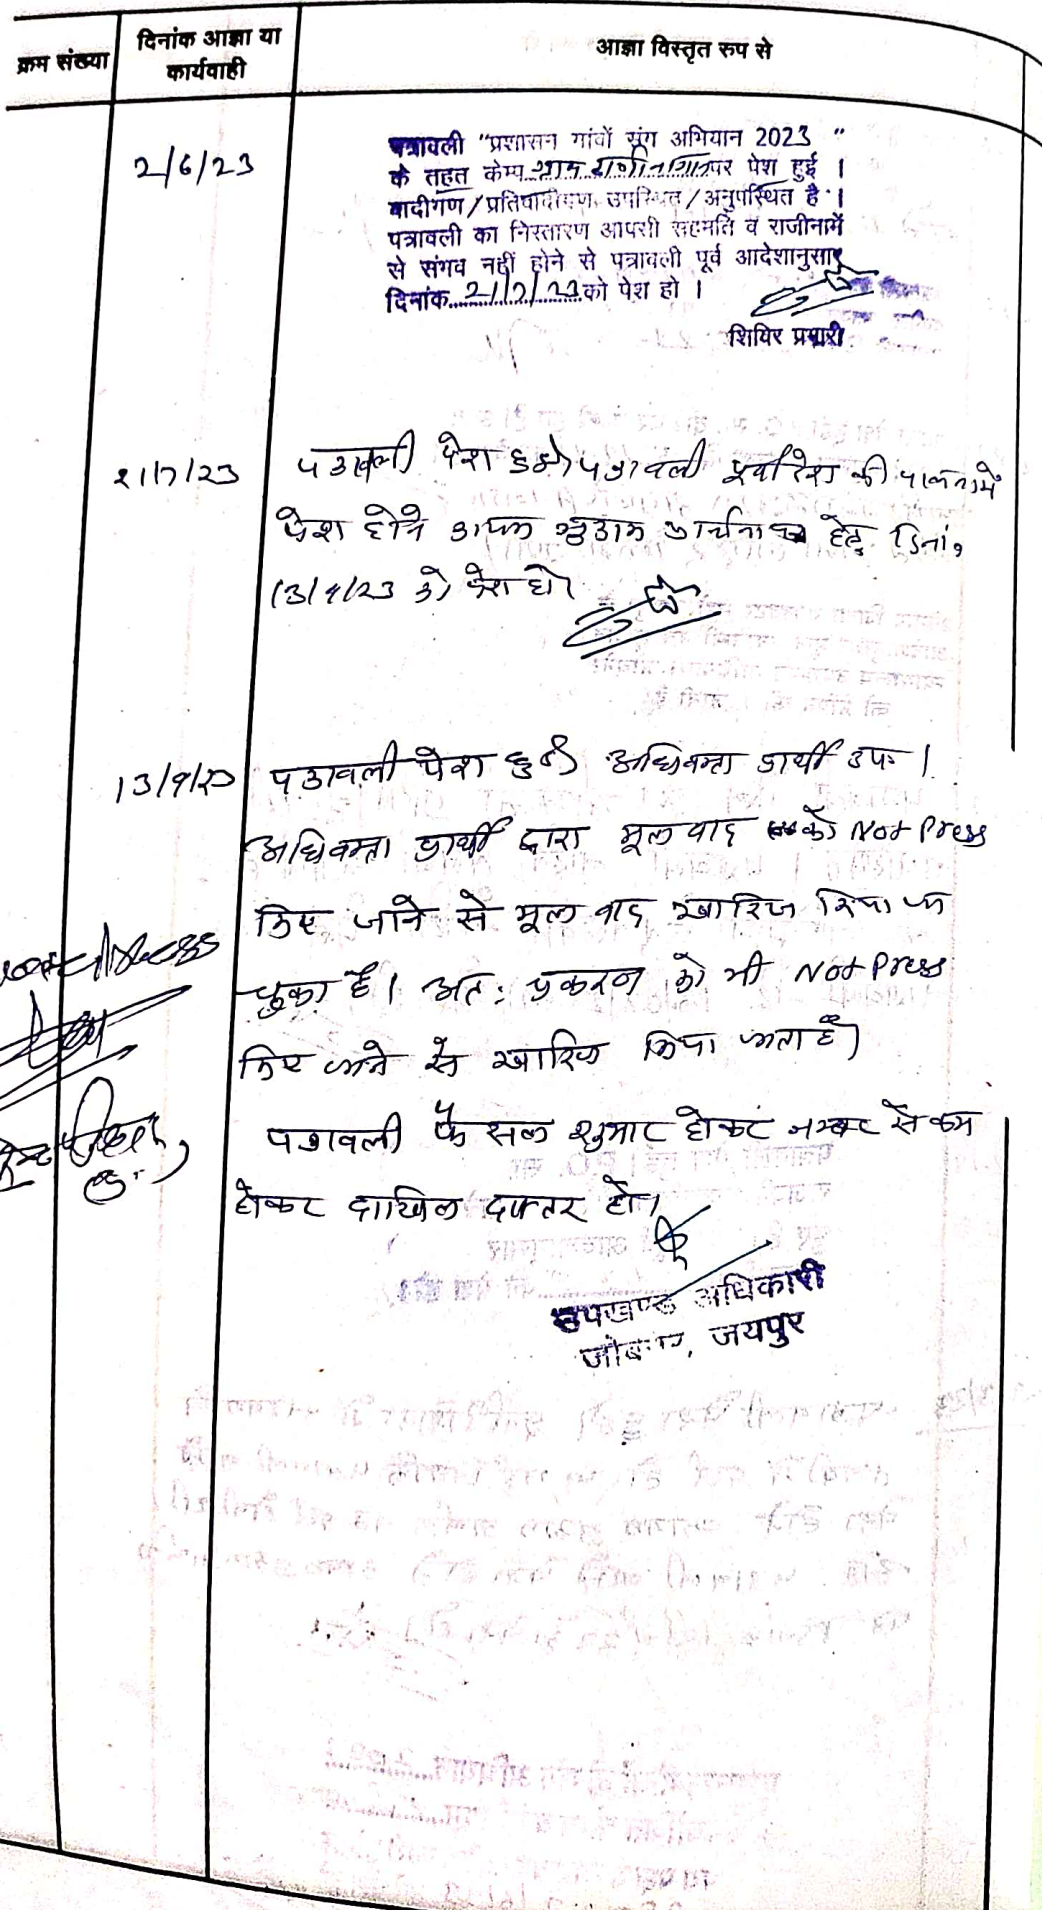 क्रम संख्या
दिनांक आज्ञा या
कार्यवाही
आज्ञा विस्तृत रुप से
2/6/23
पत्रावली "प्रशासन गांवों संग अभियान 2023 "
के तहत केम्प पर पेश हुई ।
वादीगण/प्रतिवादीगण उपस्थित/अनुपस्थित है ।
पत्रावली का निस्तारण आपसी सहमति व राजीनामें
से संभव नहीं होने से पत्रावली पूर्व आदेशानुसार
दिनांक 21/7/23 को पेश हो ।
शिविर प्रभारी
21/7/23
पत्रावली पेश हुई। पत्रावली पूर्वादेश की पालना में
पेश होवे प्रार्थना हेतु
13/9/23 को पेश हो।
13/9/23
पत्रावली पेश हुई अधिवक्ता प्रार्थी उप. ।
अधिवक्ता प्रार्थी द्वारा मूल वाद को Not Press
किए जाने से मूल वाद खारिज किया जा
चुका है। अत: प्रकरण को भी Not Press
किए जाने से खारिज किया जाता है।
पत्रावली फैसल शुमार होकर नम्बर से कम
होकर दाखिल दफ्तर हो।
उपखण्ड अधिकारी
जोबनेर, जयपुर